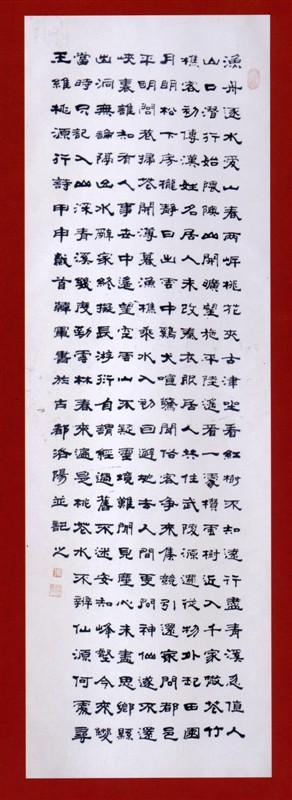 漁舟逐水愛山春兩岍桃花夾古津坐看紅樹不知遠行盡青溪忽值人
山口潛行始隈隩山開曠望旋平陸遙看一處攢雲樹近入千家散花竹
樵客初傳漢姓名居人未改秦衣服居人終住武陵源還從物外起田園
月明松下房櫳靜日出雲中鷄犬喧驚聞俗客爭來集競引還家問都邑
平明閭巷掃花開薄暮漁樵乘水入初因避地去人間更問神仙遂不還
峽裏誰知有人事世中遙望空雲山不疑靈境難聞見塵心未盡思鄉縣
出洞無論隔山水辭家終擬長游衍自謂經過舊不迷安知峰壑今來變
當時只記入山深青溪幾度到雲林春來遍是桃花水不辨仙源何處尋
王維桃源行詩甲申歲首韓軍書於古都洛陽並記之